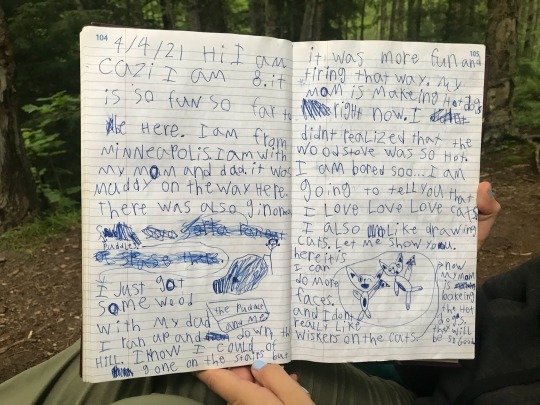 104
4/4/21 Hi I am
Cazi I am 8. it
is so fun so far to
be Here. I am from
Minneapolis. I am with
my mom and dad. it was
muddy on the way Here.
There was also ginormous
Puddles
I Just got
some wood
The Puddle
and me
with my dad
I ran up and down the
Hill. I know I could of
gone on the stairs but
105
it was more fun and
tiring that way. My
mom is makeing Hot dogs
right now. I
didnt realized that the
woodstove was so Hot.
I am bored soo... I am
going to tell you that
I Love Love Love cats
I also like drawing
cats. Let me show you.
here it is
I can
do more
faces.
and I dont
really Like
wiskers on the cats.
now
my mom
is
the Hot
dogs.
the will
be so Good